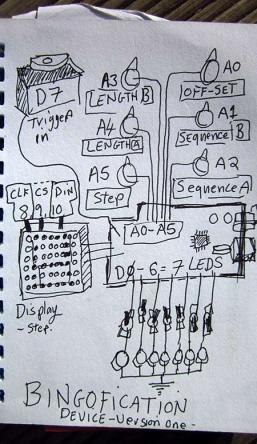 D7
TriggeA
in
A3
LENGTH B
A4
LENGTH A
A5
Step
A0
OFF-SET
A1
Sequence B
A2
Sequence A
CLK CS Din
8 9 10
A0-A5
D0-6=7 LEDS
Display
-Step.
BINGOFICATION
DEVICE-Version one-